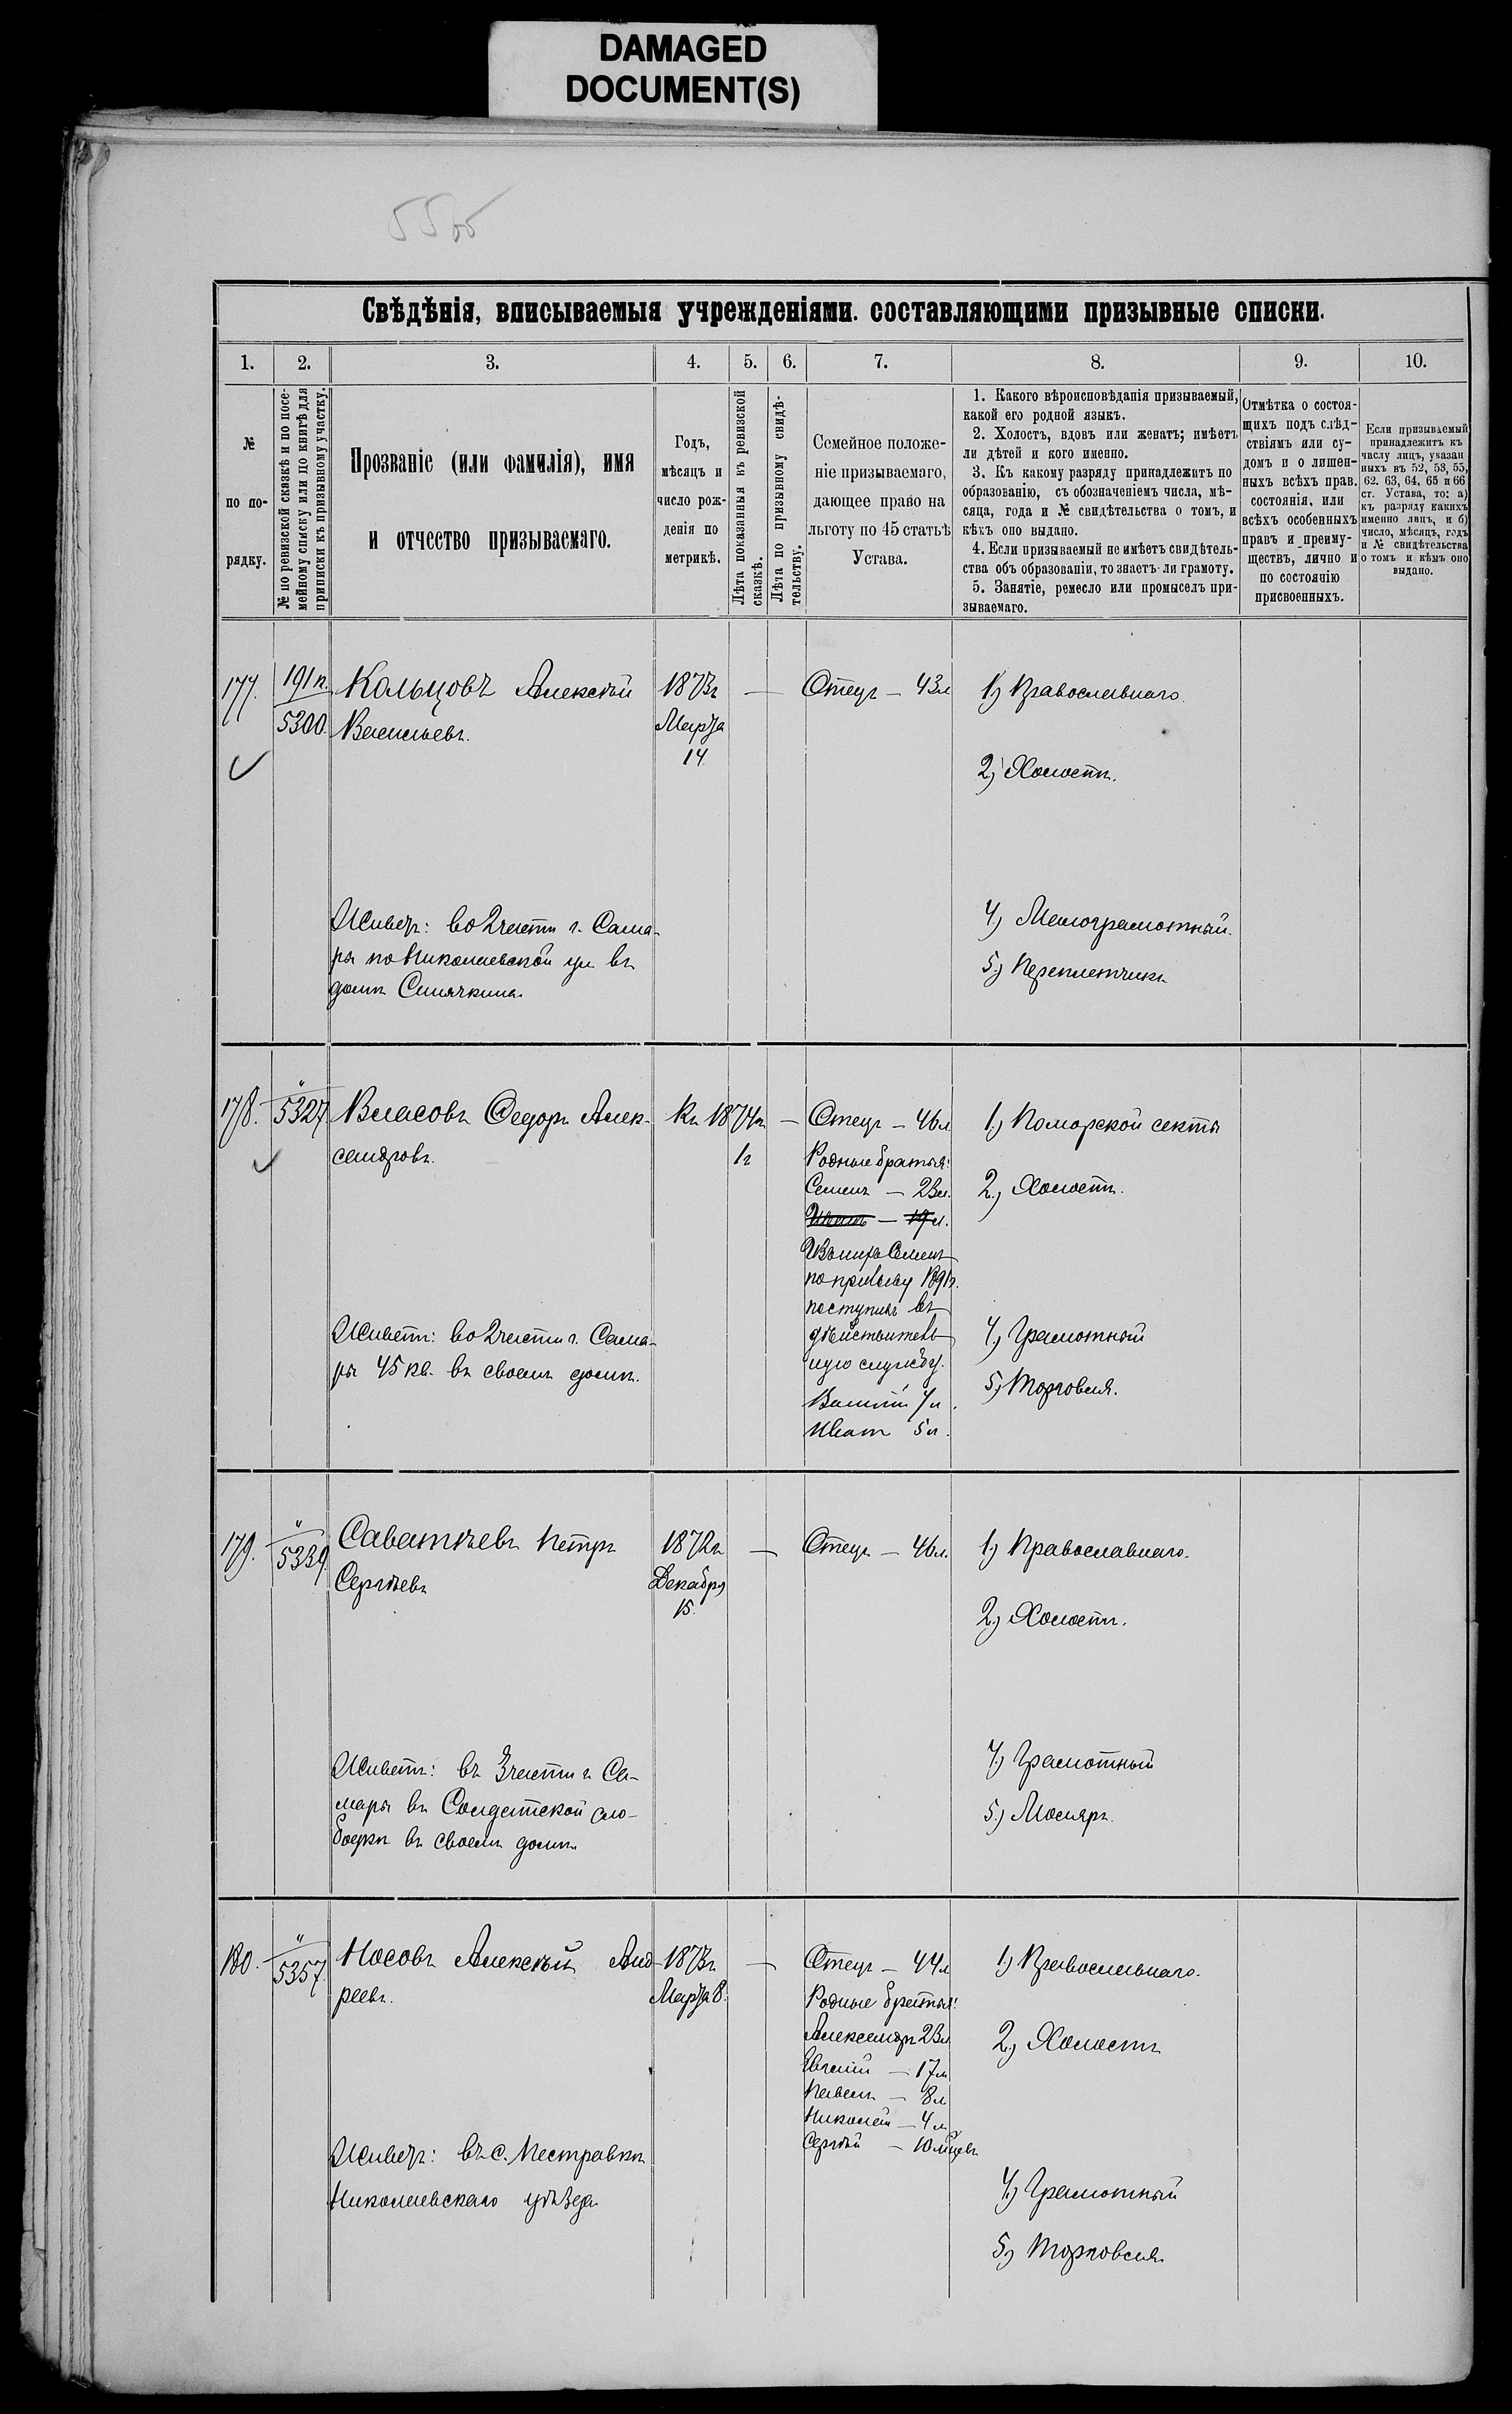 DAMAGED
DOCUMENT(S)
Свѣдѣнія, вписываемыя учрежденіями. составляющими призывные списки.
1.
2.
3.
4.
5.
6.
7.
8.
9.
10.
№
по по-
рядку.
№ по ревизской сказкѣ и по посе-
мейному списку или по книгѣ для
приписки къ призывному участку.
Прозваніе (или фамилія), имя
и отчество призываемаго.
Годъ,
мѣсяцъ и
число рож-
денія по
метрикѣ.
Лѣта показанныя въ ревизской
сказкѣ.
Лѣта по призывному свидѣ-
тельству.
Семейное положе-
ніе призываемаго,
дающее право на
льготу по 45 статьѣ
Устава.
1. Какого вѣроисповѣданія призываемый,
какой его родной языкъ.
2. Холостъ, вдовъ или женатъ; имѣетъ
ли дѣтей и кого именно.
3. Къ какому разряду принадлежитъ по
образованію, съ обозначеніемъ числа, мѣ-
сяца, года и № свидѣтельства о томъ, и
кѣмъ оно выдано.
4. Если призываемый не имѣетъ свидѣтель-
ства объ образованіи, то знаетъ-ли грамоту.
5. Занятіе, ремесло или промыселъ при-
зываемаго.
Отмѣтка о состоя-
щихъ подъ слѣд-
ствіямъ или су-
домъ и о лишен-
ныхъ всѣхъ прав.
состоянія, или
всѣхъ особенныхъ
правъ и преиму-
ществъ, лично и
по состоянію
присвоенныхъ.
Если призываемый
принадлежитъ къ
числу лицъ, указан
ныхъ въ 52, 53, 55,
62. 63, 64, 65 и 66
ст. Устава, то: а)
къ разряду какихъ
именно лицъ, и б)
число, мѣсяцъ, годъ
и № свидѣтельства
о томъ и кѣмъ оно
выдано.
177.
191 п.
5300.
Кольцовъ Алексѣй
Васильевъ.
1873г
Марта
14.
—
Отецъ — 43л
1) Православнаго.
2) Холостъ.
4) Малограмотный.
5) Переплетчикъ
Живетъ: во 2 части г. Сама-
ры по Николаевской ул въ
домѣ Синячкина.
178.
"
5327.
Власовъ Федоръ Алек-
сандровъ.
Къ 1874г
1г
—
Отецъ — 46л
Родные братья:
Семенъ — 23л.
Иванъ — 19л.
Изъ нихъ Семенъ
по призыву 1891г.
поступилъ въ
дѣйствитель
ную службу.
Василій 7л.
Иванъ 5л.
1) Поморской секты
2) Холостъ.
4) Грамотный
5) Торговля.
Живетъ: во 2 части г. Сама-
ры 45 кв. въ своемъ домѣ.
179.
"
5339.
Саватѣевъ Петръ
Сергѣевъ
1872г
Декабря
15.
—
Отецъ — 46л.
1) Православнаго.
2) Холостъ.
4) Грамотный
5) Маляръ.
Живетъ: въ 3 части г. Са-
мары въ Солдатской сло-
бодкѣ въ своемъ домѣ
180.
"
5357.
Носовъ Алексѣй Анд-
реевъ.
1873г
Марта 8.
—
Отецъ — 44л
Родные братья:
Александръ 23л
Евгеній — 17л
Павелъ — 8л
Николай — 4л
Сергѣй — 10 м͠цевъ
1) Православнаго.
2) Холостъ
4) Грамотный
5) Торговля.
Живетъ: въ с. Пестравкѣ
Николаевскаго уѣзда.